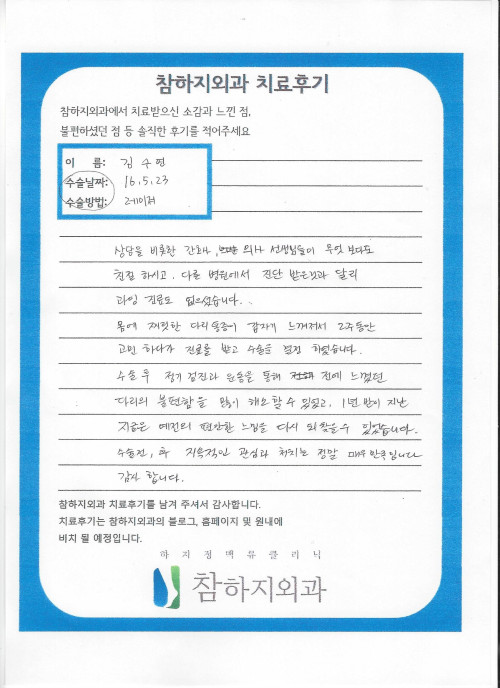 참하지외과 치료후기
참하지외과에서 치료받으신 소감과 느낀 점,
불편하셨던 점 등 솔직한 후기를 적어주세요
이 름: 김수연
수술날짜: 16.5.23
수술방법: 레이저
상담을 비롯한 간호사, 의사 선생님들이 무엇 보다도
친절 하시고. 다른 병원에서 진단 받은것과 달리
과잉 진료도 없으셨습니다..
몸에 찌릿한 다리 통증이 갑자기 느껴져서 2주동안
고민 하다가 진료를 받고 수술을 결정 하였습니다.
수술 후 정기 검진과 운동을 통해 전에 느꼈던
다리의 불편함을 많이 해소할 수 있었고, 1년 반이 지난
지금은 예전의 편안한 느낌을 다시 되찾을 수 있었습니다.
수술전, 후 지속적인 관심과 처치는 정말 매우 만족입니다
감사 합니다.
참하지외과 치료후기를 남겨 주셔서 감사합니다.
치료후기는 참하지외과의 블로그, 홈페이지 및 원내에
비치 될 예정입니다.
하지정맥류클리닉
참하지외과